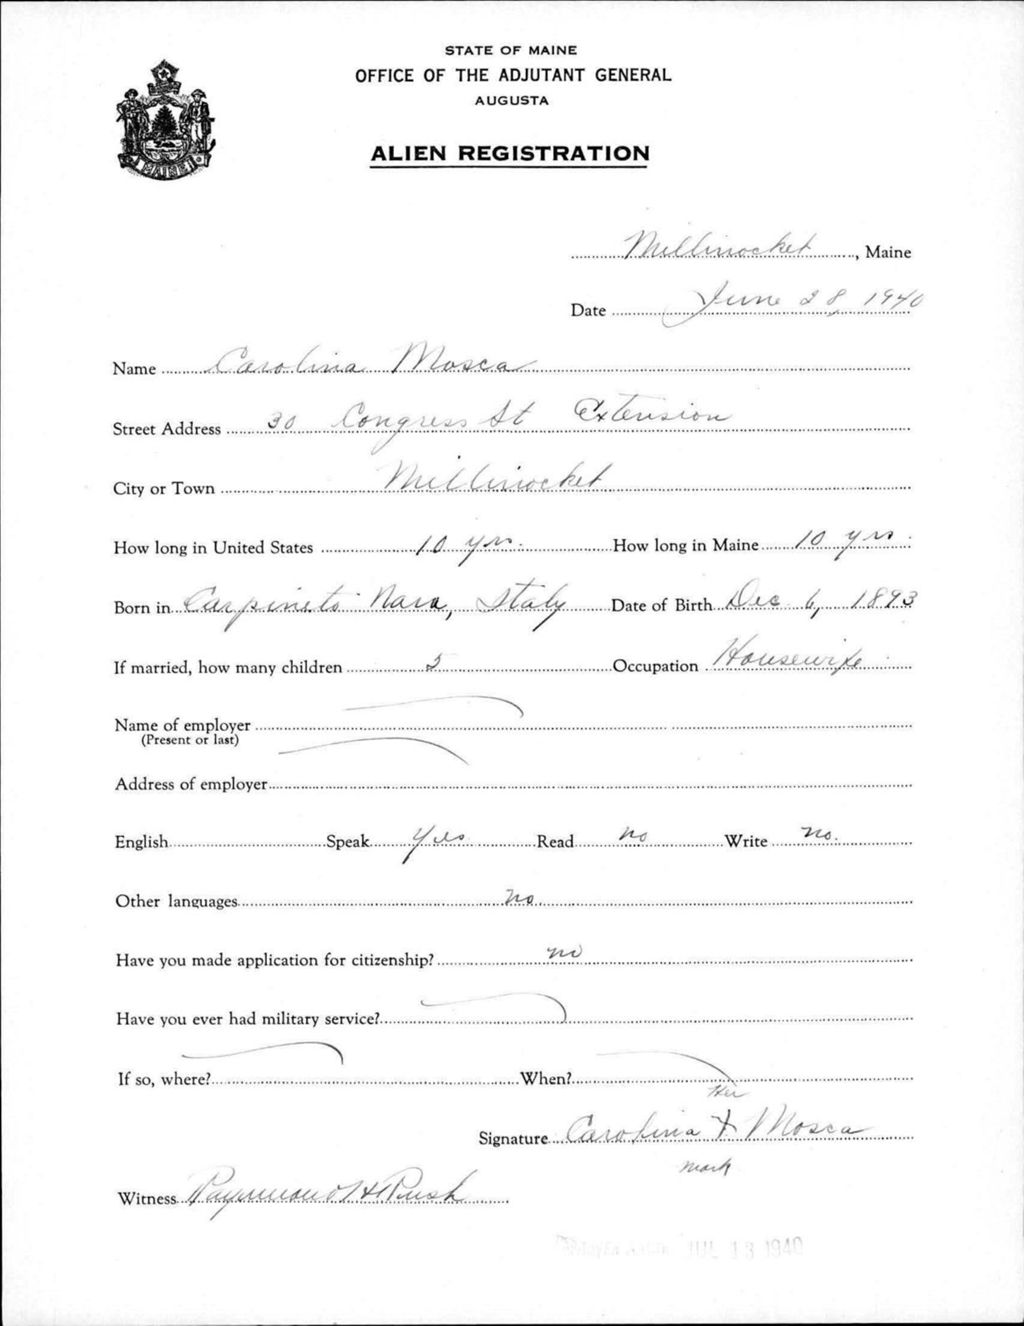 STATE OF MAINE
OFFICE OF THE ADJUTANT GENERAL
AUGUSTA
ALIEN REGISTRATION
MAINE
Millinocket, Maine
Date June 28, 1940
Name Carolina Mosca
Street Address 30 Congress St Extension
City or Town Millinocket
How long in United States 10 yrs. How long in Maine 10 yrs.
Born in Carpineto Nara, Italy Date of Birth Dec 6, 1893
If married, how many children 5 Occupation Housewife
Name of employer
(Present or last)
Address of employer
English Speak Yes Read no Write no.
Other languages no
Have you made application for citizenship? no
Have you ever had military service?
If so, where? When?
Her
Signature Carolina X Mosca
mark
Witness Raymond H Rush
JUL 13 1940